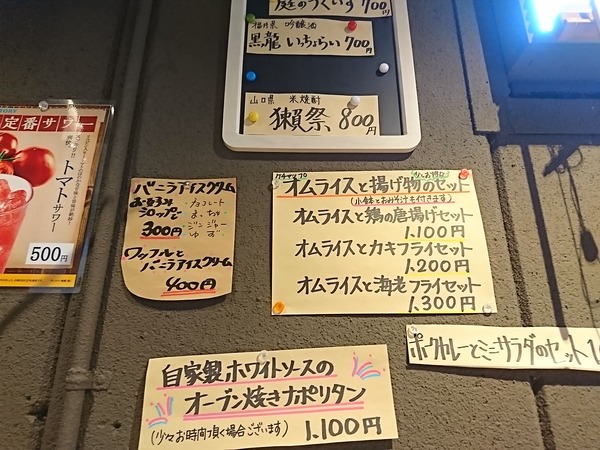 庭のうぐいす 700
福井県 吟醸酒
黒龍 いっちょらい 700円
山口県 米焼酎
獺祭 800円
定番サワー
トマトサワー
500円
バニラアイスクリーム
チョコレート
まっちゃ
ジンジャー
ゆず
300円
ワッフルと
バニラアイスクリーム
400円
ケチャップ
オムライスと揚げ物のセット
(小鉢とおみそ汁も付きます)
オムライスと鶏の唐揚げセット
1.100円
オムライスとカキフライセット
1.200円
オムライスと海老フライセット
1.300円
ポークカレーとミニサラダのセット
自家製ホワイトソースの
オーブン焼きナポリタン
(少々お時間頂く場合ございます) 1.100円